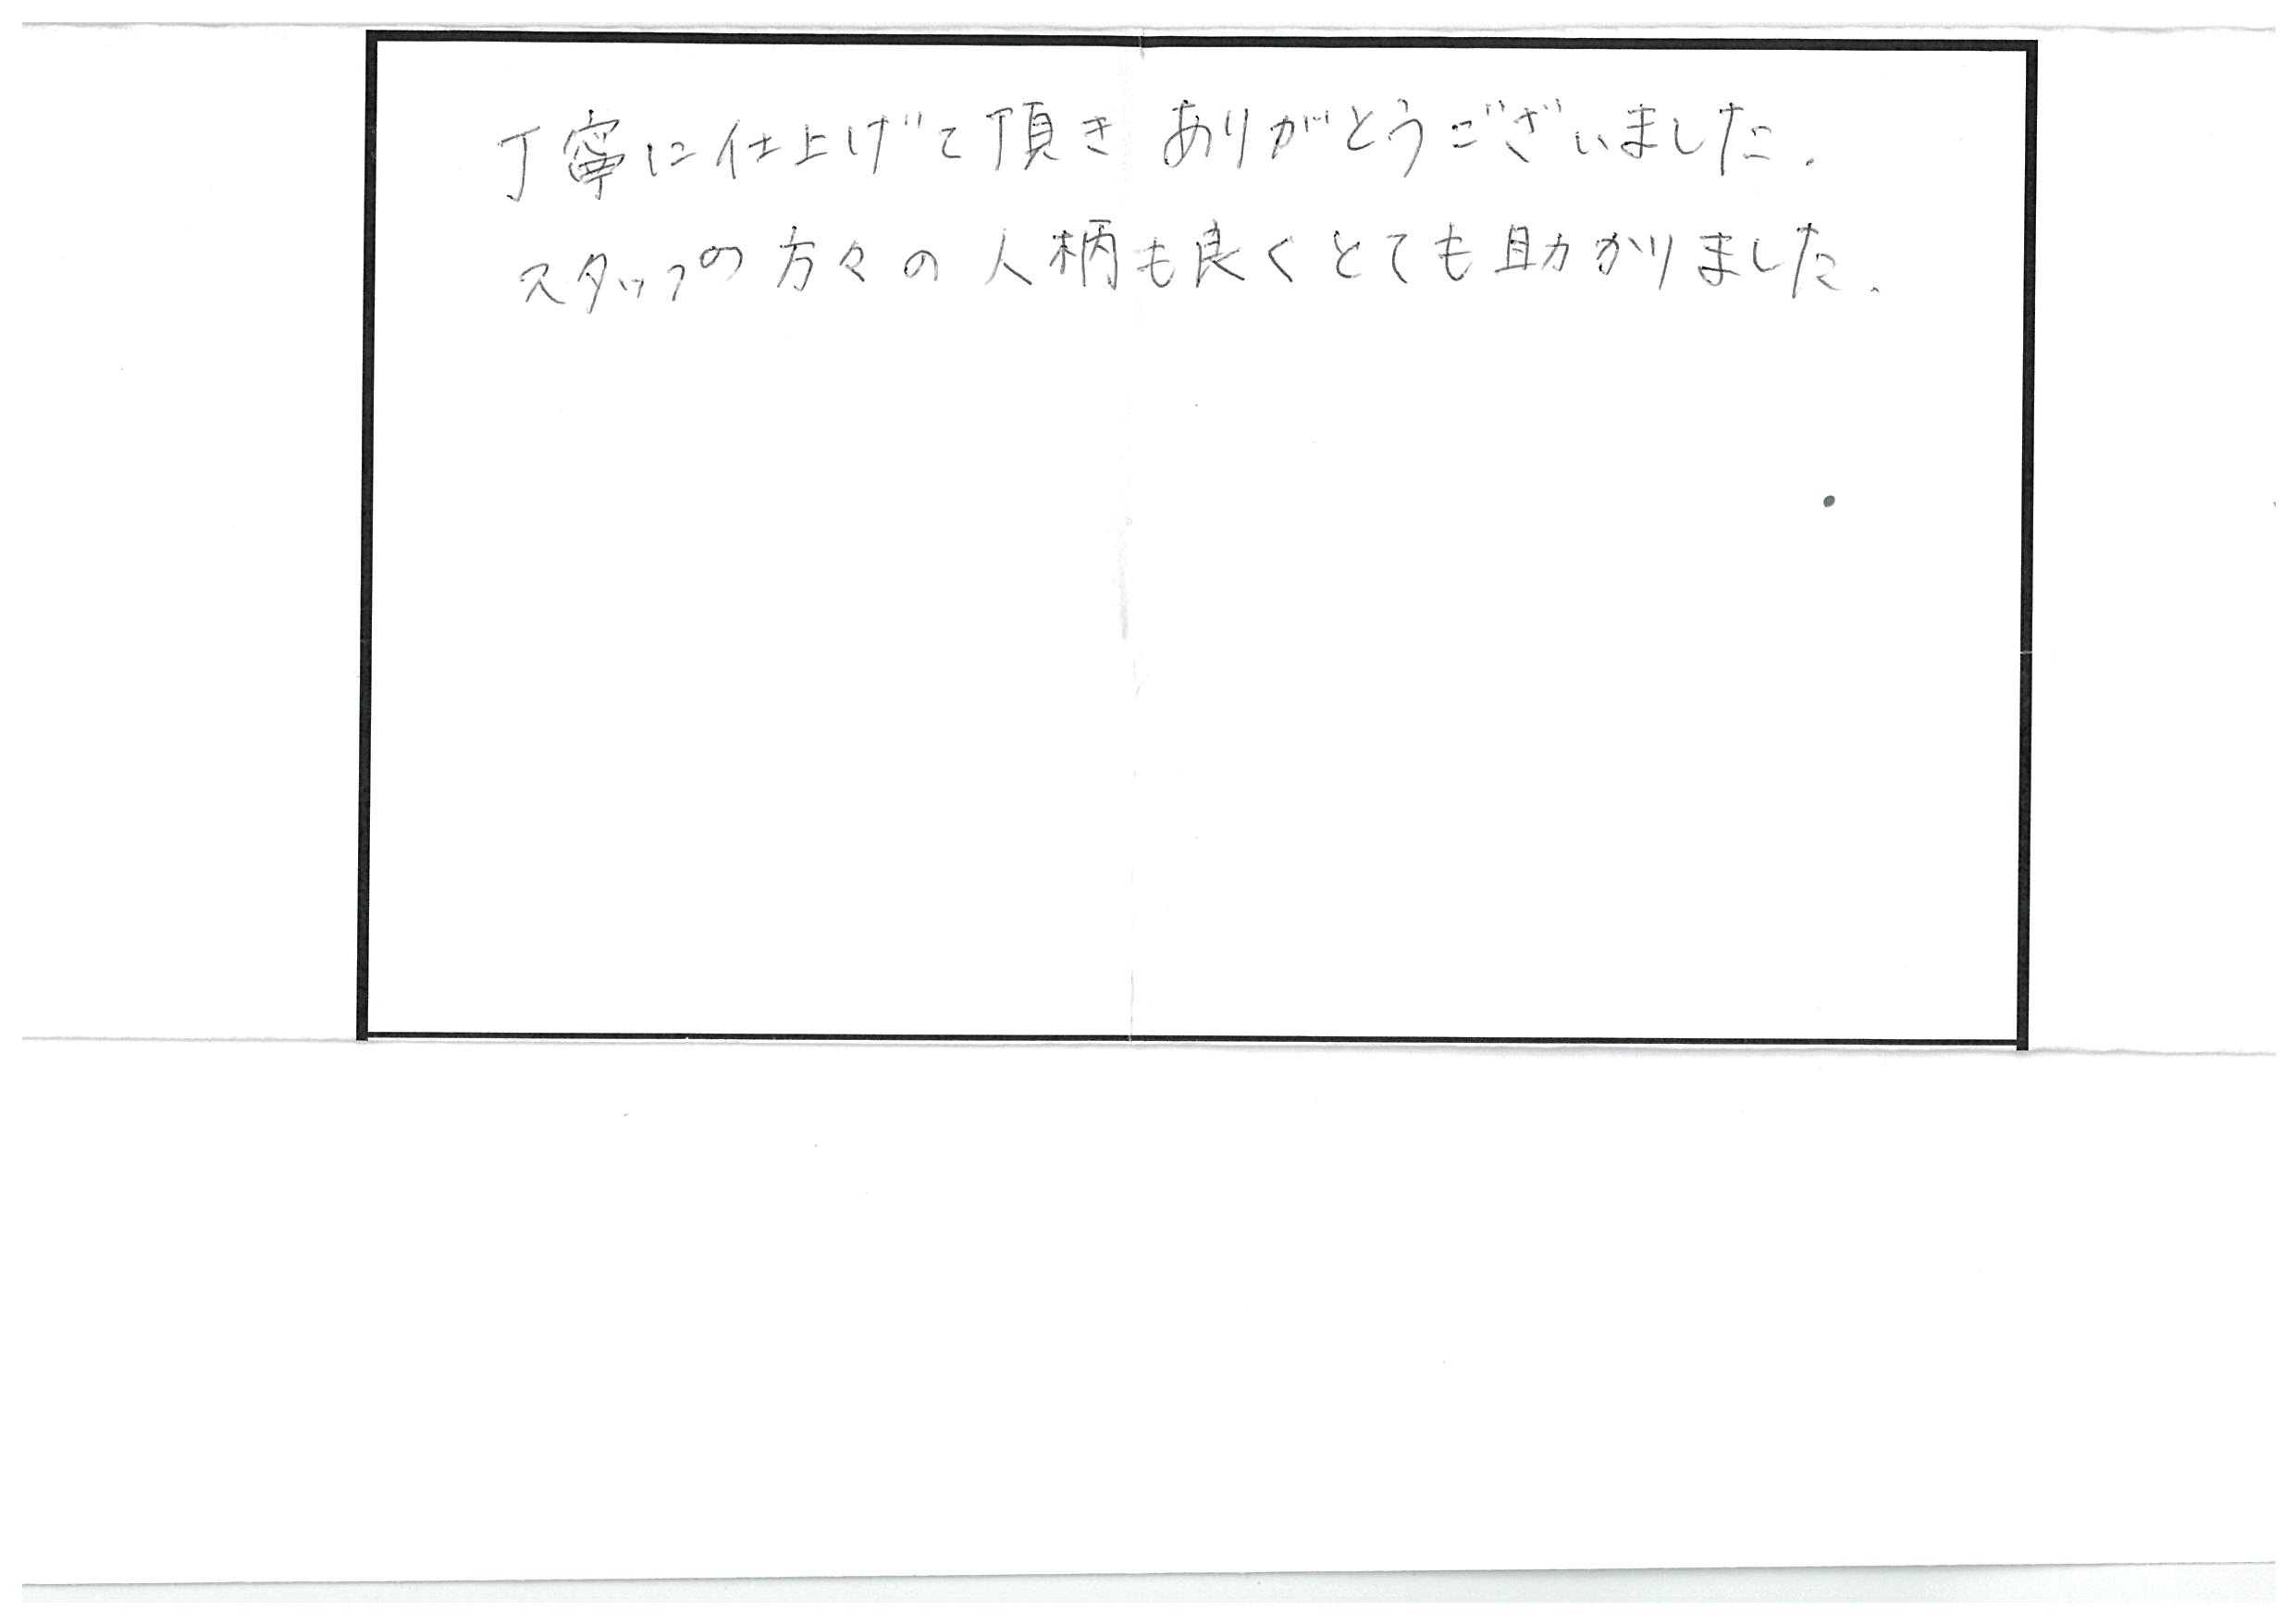 丁寧に仕上げて頂き ありがとうございました.
スタッフの方々の人柄も良くとても助かりました.